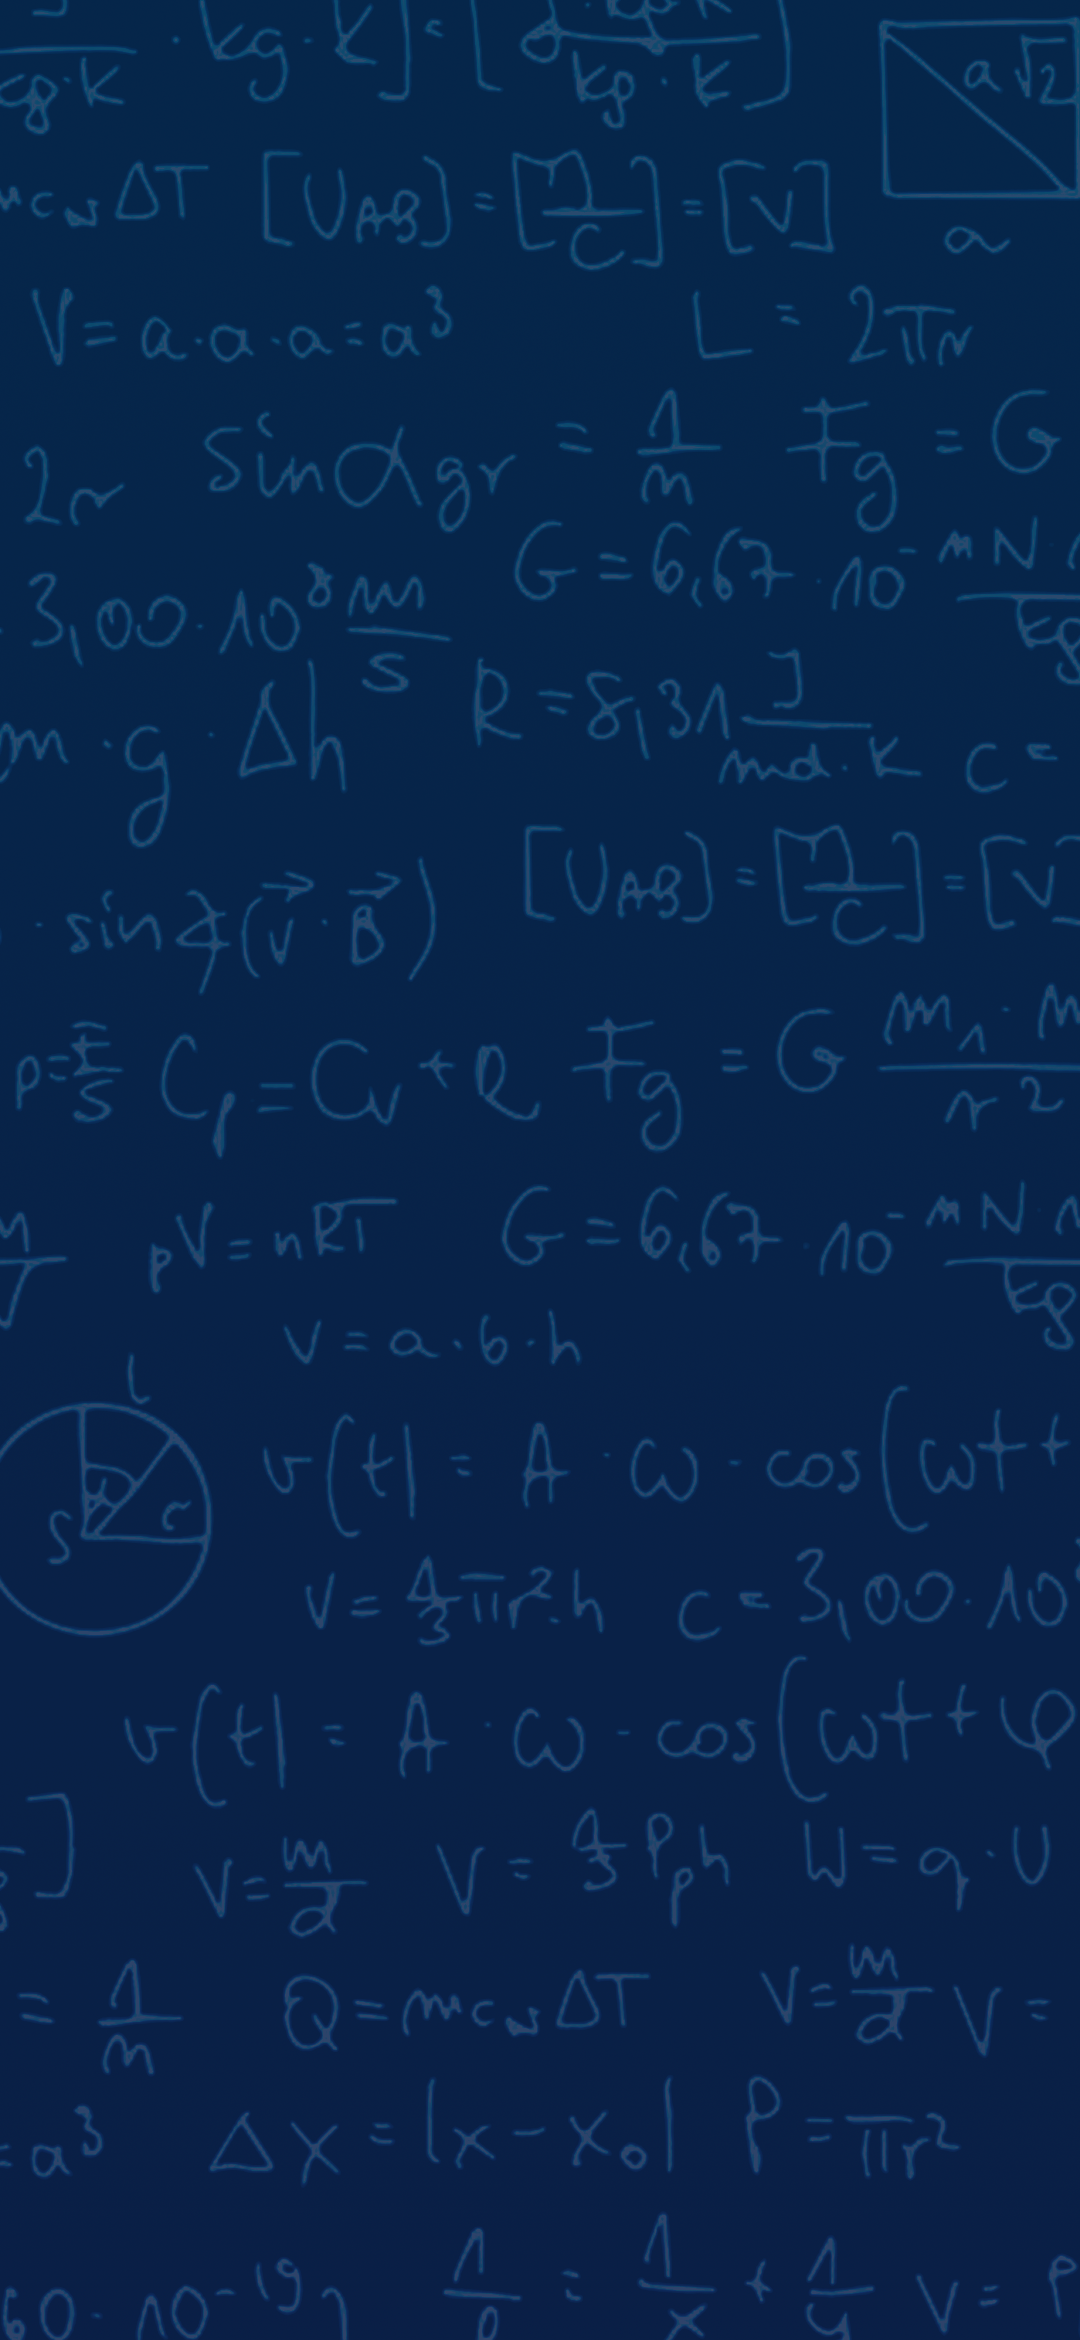 kg·K · kg·K] = [ kg·K ]
a√2
mc_w ΔT [U_AB] = [J/C] = [V]
a
V = a·a·a = a³ L = 2πr
2r sin α_gr = 1/n F_g = G
3,00·10⁸ m/s G = 6,67·10⁻ N·
kg
m·g·Δh R = 8,31 J/mol·K c =
· sin∢(v⃗·B⃗) [U_AB] = [J/C] = [V]
p = F/S C_p = C_v + R F_g = G m₁·m/r²
pV = nRT G = 6,67·10⁻ N·
kg
V = a·b·h
L
S α r
v(t) = A·ω·cos(ωt +
V = 1/3 πr²·h c = 3,00·10
v(t) = A·ω·cos(ωt + φ
] V = m/d V = 1/3 P_p h W = q·U
= 1/n Q = mc_w ΔT V = m/d V =
= a³ Δx = |x - x₀| P = πr²
60·10⁻¹⁹ J 1/f = 1/x + 1/y V = P